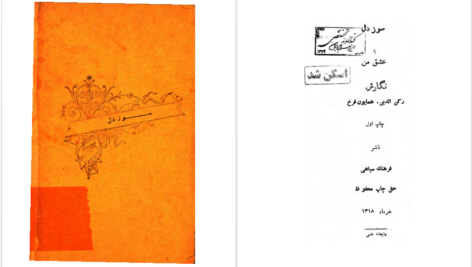 سوز دل
سوز دل
یا
عشق من
اسکن شد
نگارش
رکن الدین همایون فرخ
چاپ اول
ناشر
فرهنگ سپاهی
حق چاپ محفوظ
خرداد ۱۳۱۸
چاپخانه علمی